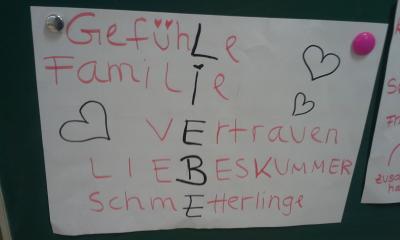 GefühLe
Familie
VErtrauen
LIEBESKUMMER
SchmEtterlinge
zusa
ha